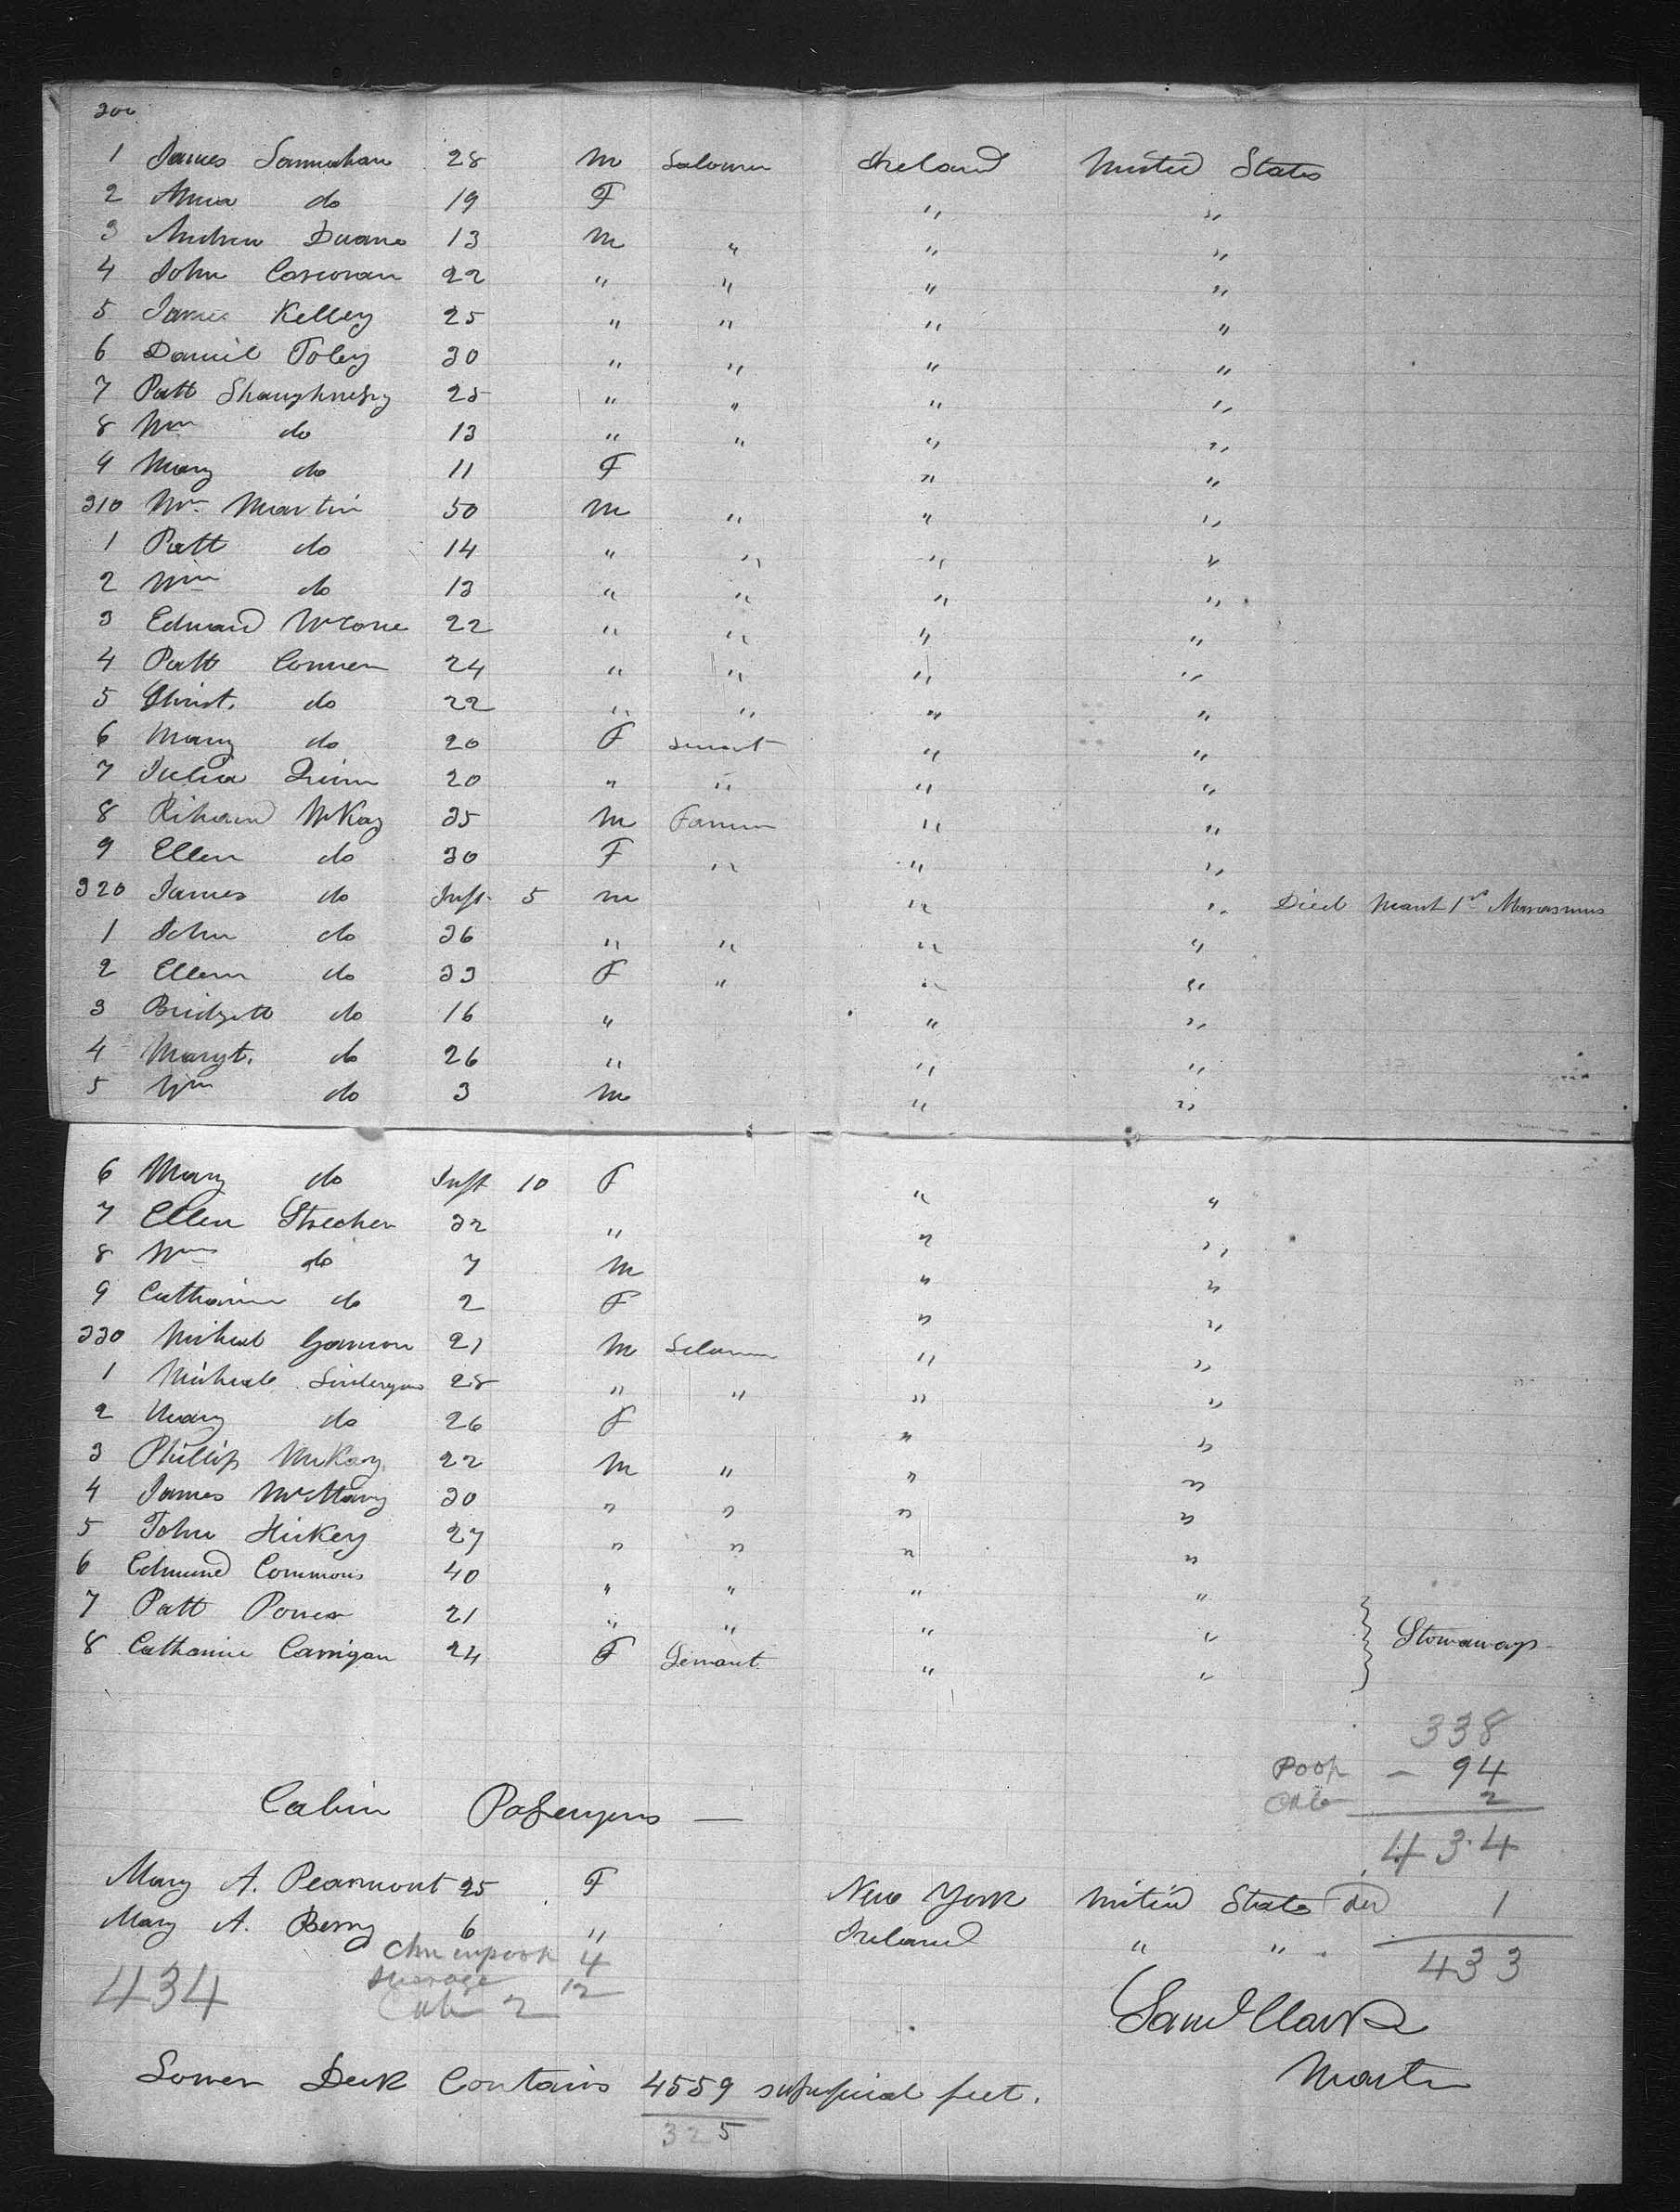 300
1 James Lannahan 28 M Labourer Ireland United States
2 Anna do 19 F " "
3 Andrew Duane 13 M " " "
4 John Corcoran 22 " " " "
5 James Kelley 25 " " " "
6 Daniel Foley 30 " " " "
7 Patt Shaughnessy 25 " " " "
8 Wm do 13 " " " "
9 Mary do 11 F " "
310 Wm Martin 50 M " " "
1 Patt do 14 " " " "
2 Wm do 13 " " " "
3 Edward 22 " " " "
4 Patt Conner 24 " " " "
5 Christ. do 22 " " " "
6 Mary do 20 F Servant " "
7 Julia Quinn 20 " " " "
8 Richard McKay 35 M Farmer " "
9 Ellen do 30 F " " "
320 James do Inft. 5 M " " Died March 1st Marasmus
1 John do 36 " " " "
2 Ellen do 33 F " " "
3 Bridgett do 16 " " "
4 Margt. do 26 " " "
5 Wm do 3 M " "
6 Mary do Inft 10 F " "
7 Ellen 32 " " "
8 Wm do 7 M " "
9 Catharine do 2 F " "
330 Michael Gannon 21 M Labourer " "
1 Michael 28 " " " "
2 Mary do 26 F " "
3 Phillip McKay 22 M " " "
4 James 30 " " " "
5 John Hickey 27 " " " "
6 Edmund Commons 40 " " " "
7 Patt Power 21 " " " " Stowaways
8 Catharine Carrigan 24 F Servant " "
338
Poop – 94
Cab 2
434
Cabin Passengers —
Mary A. Pearmont 25 F New York United States
1
Mary A. Berry 6 " Ireland " "
433
Chn in poop 4
Steerage 12
Cab 2
434
Saml Clark
Master
Lower Deck Contains 4559 superficial feet.
325